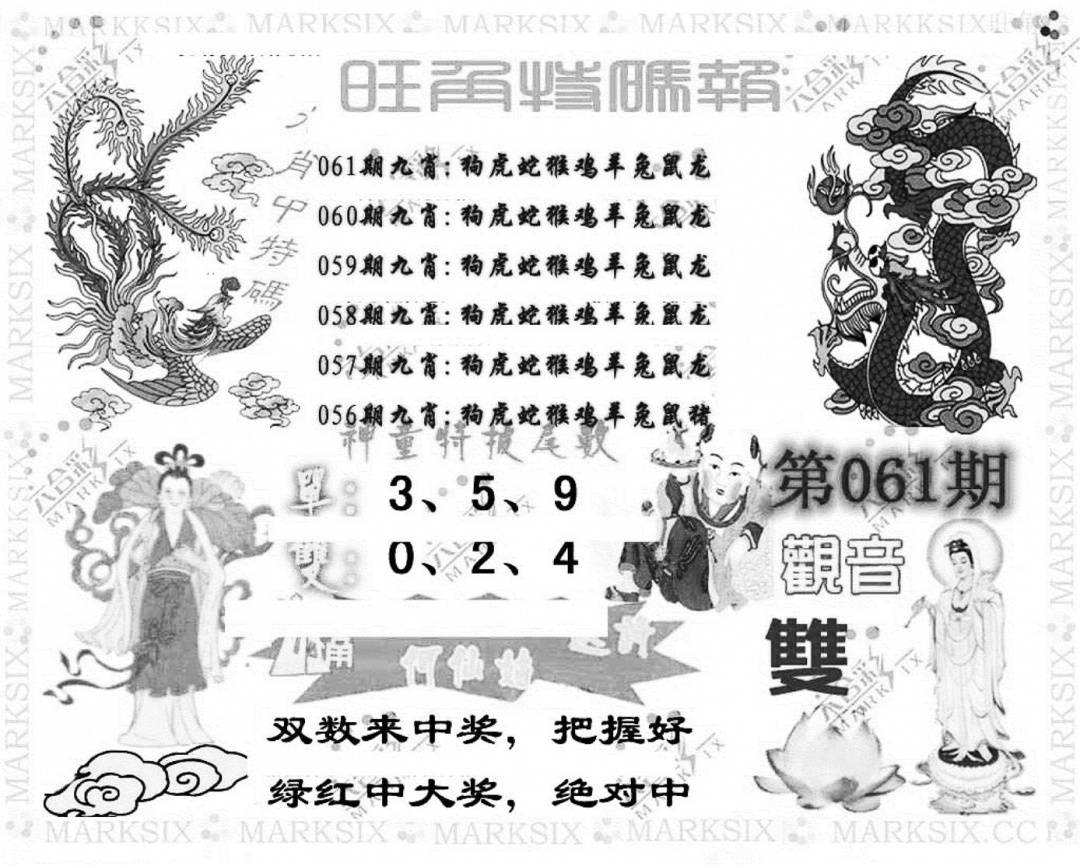 MARKSIX MARKSIX MARKSIX MARKSIX MARKKSIX
旺角特碼報
肖中特碼
061期九肖:狗虎蛇猴鸡羊兔鼠龙
060期九肖:狗虎蛇猴鸡羊兔鼠龙
059期九肖:狗虎蛇猴鸡羊兔鼠龙
058期九肖:狗虎蛇猴鸡羊兔鼠龙
057期九肖:狗虎蛇猴鸡羊兔鼠龙
056期九肖:狗虎蛇猴鸡羊兔鼠猪
神童特报尾數
單: 3、5、9
雙: 0、2、4
第061期
觀音
雙
何仙姑
双数来中奖，把握好
绿红中大奖，绝对中
MARKSIX MARKSIX MARKSIX MARKSIX MARKSIX.CC